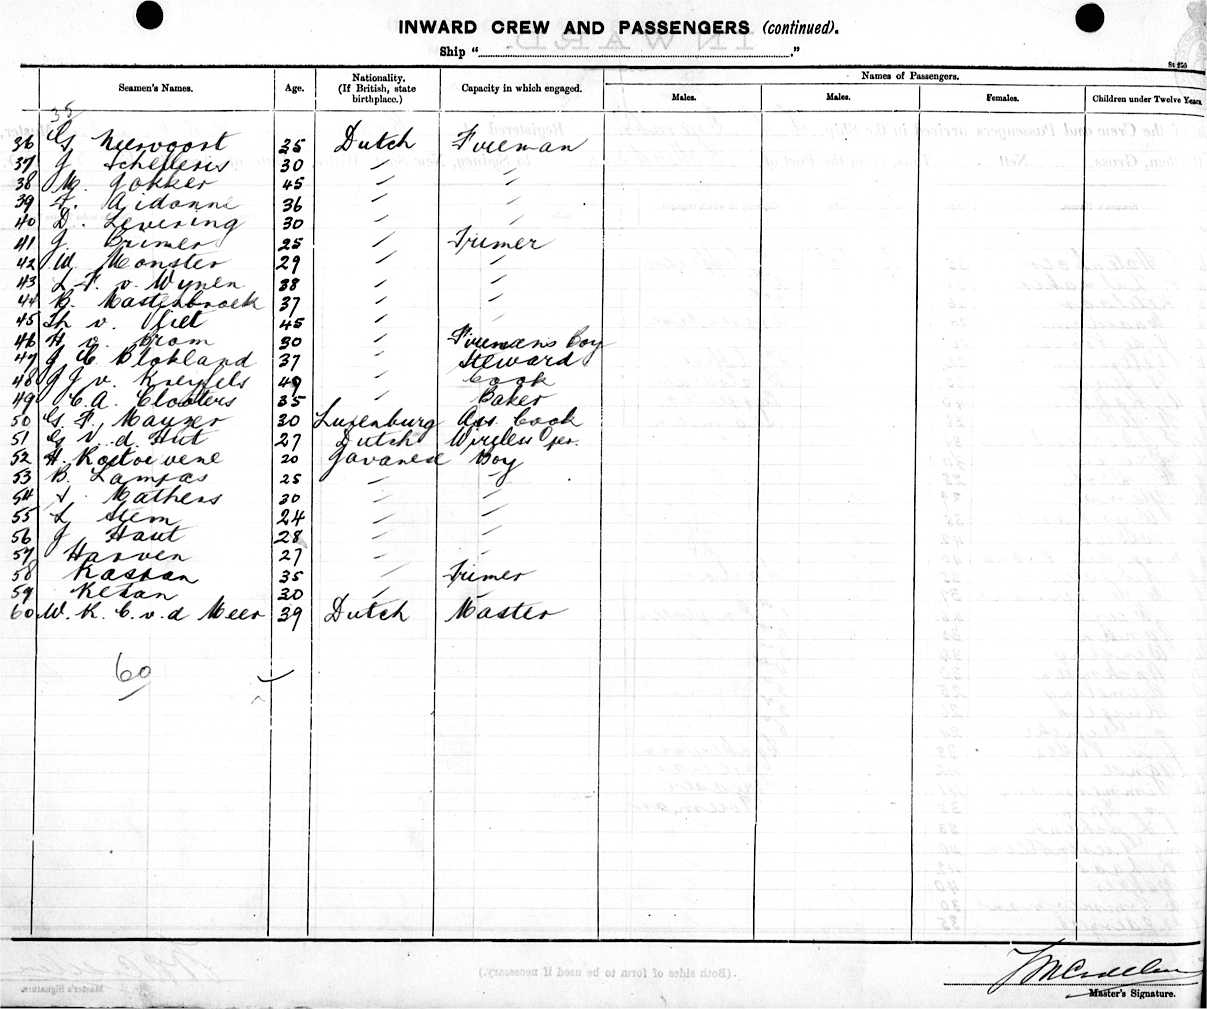 INWARD CREW AND PASSENGERS (continued).
Ship " "
St 250
Seamen's Names. Age. Nationality. (If British, state birthplace.) Capacity in which engaged. Names of Passengers.
Males. Males. Females. Children under Twelve Years
35
36 G Neervoort 25 Dutch Fireman
37 J Schelleris 30 " "
38 M. Jokker 45 " "
39 F. Aidonni 36 " "
40 D. Levering 30 " "
41 J. Brimer 25 " Trimer
42 W. Monster 29 " "
43 L F. v. Wynen 38 " "
44 B. Mastenbroek 37 " "
45 Th v. Vliet 45 " "
46 H v. Brom 30 " Firemans Boy
47 J C Blokland 37 " Steward
48 J J v. 49 " Cook
49 C. A. Clooters 35 " Baker
50 G. F. Mayser 30 Luxenburg Ass Cook
51 G v. d. Hut 27 Dutch Wireless Oper.
52 H. 20 Javanese Boy
53 B. Lampas 25 " "
54 Mathens 30 " "
55 L Stem 24 " "
56 J Haut 28 " "
57 Harven 27 " "
58 Kassan 35 " Trimer
59 Kesan 30 " "
60 W. K. C. v. d Meer 39 Dutch Master
60
(Both sides of form to be used if necessary.)
Master's Signature.